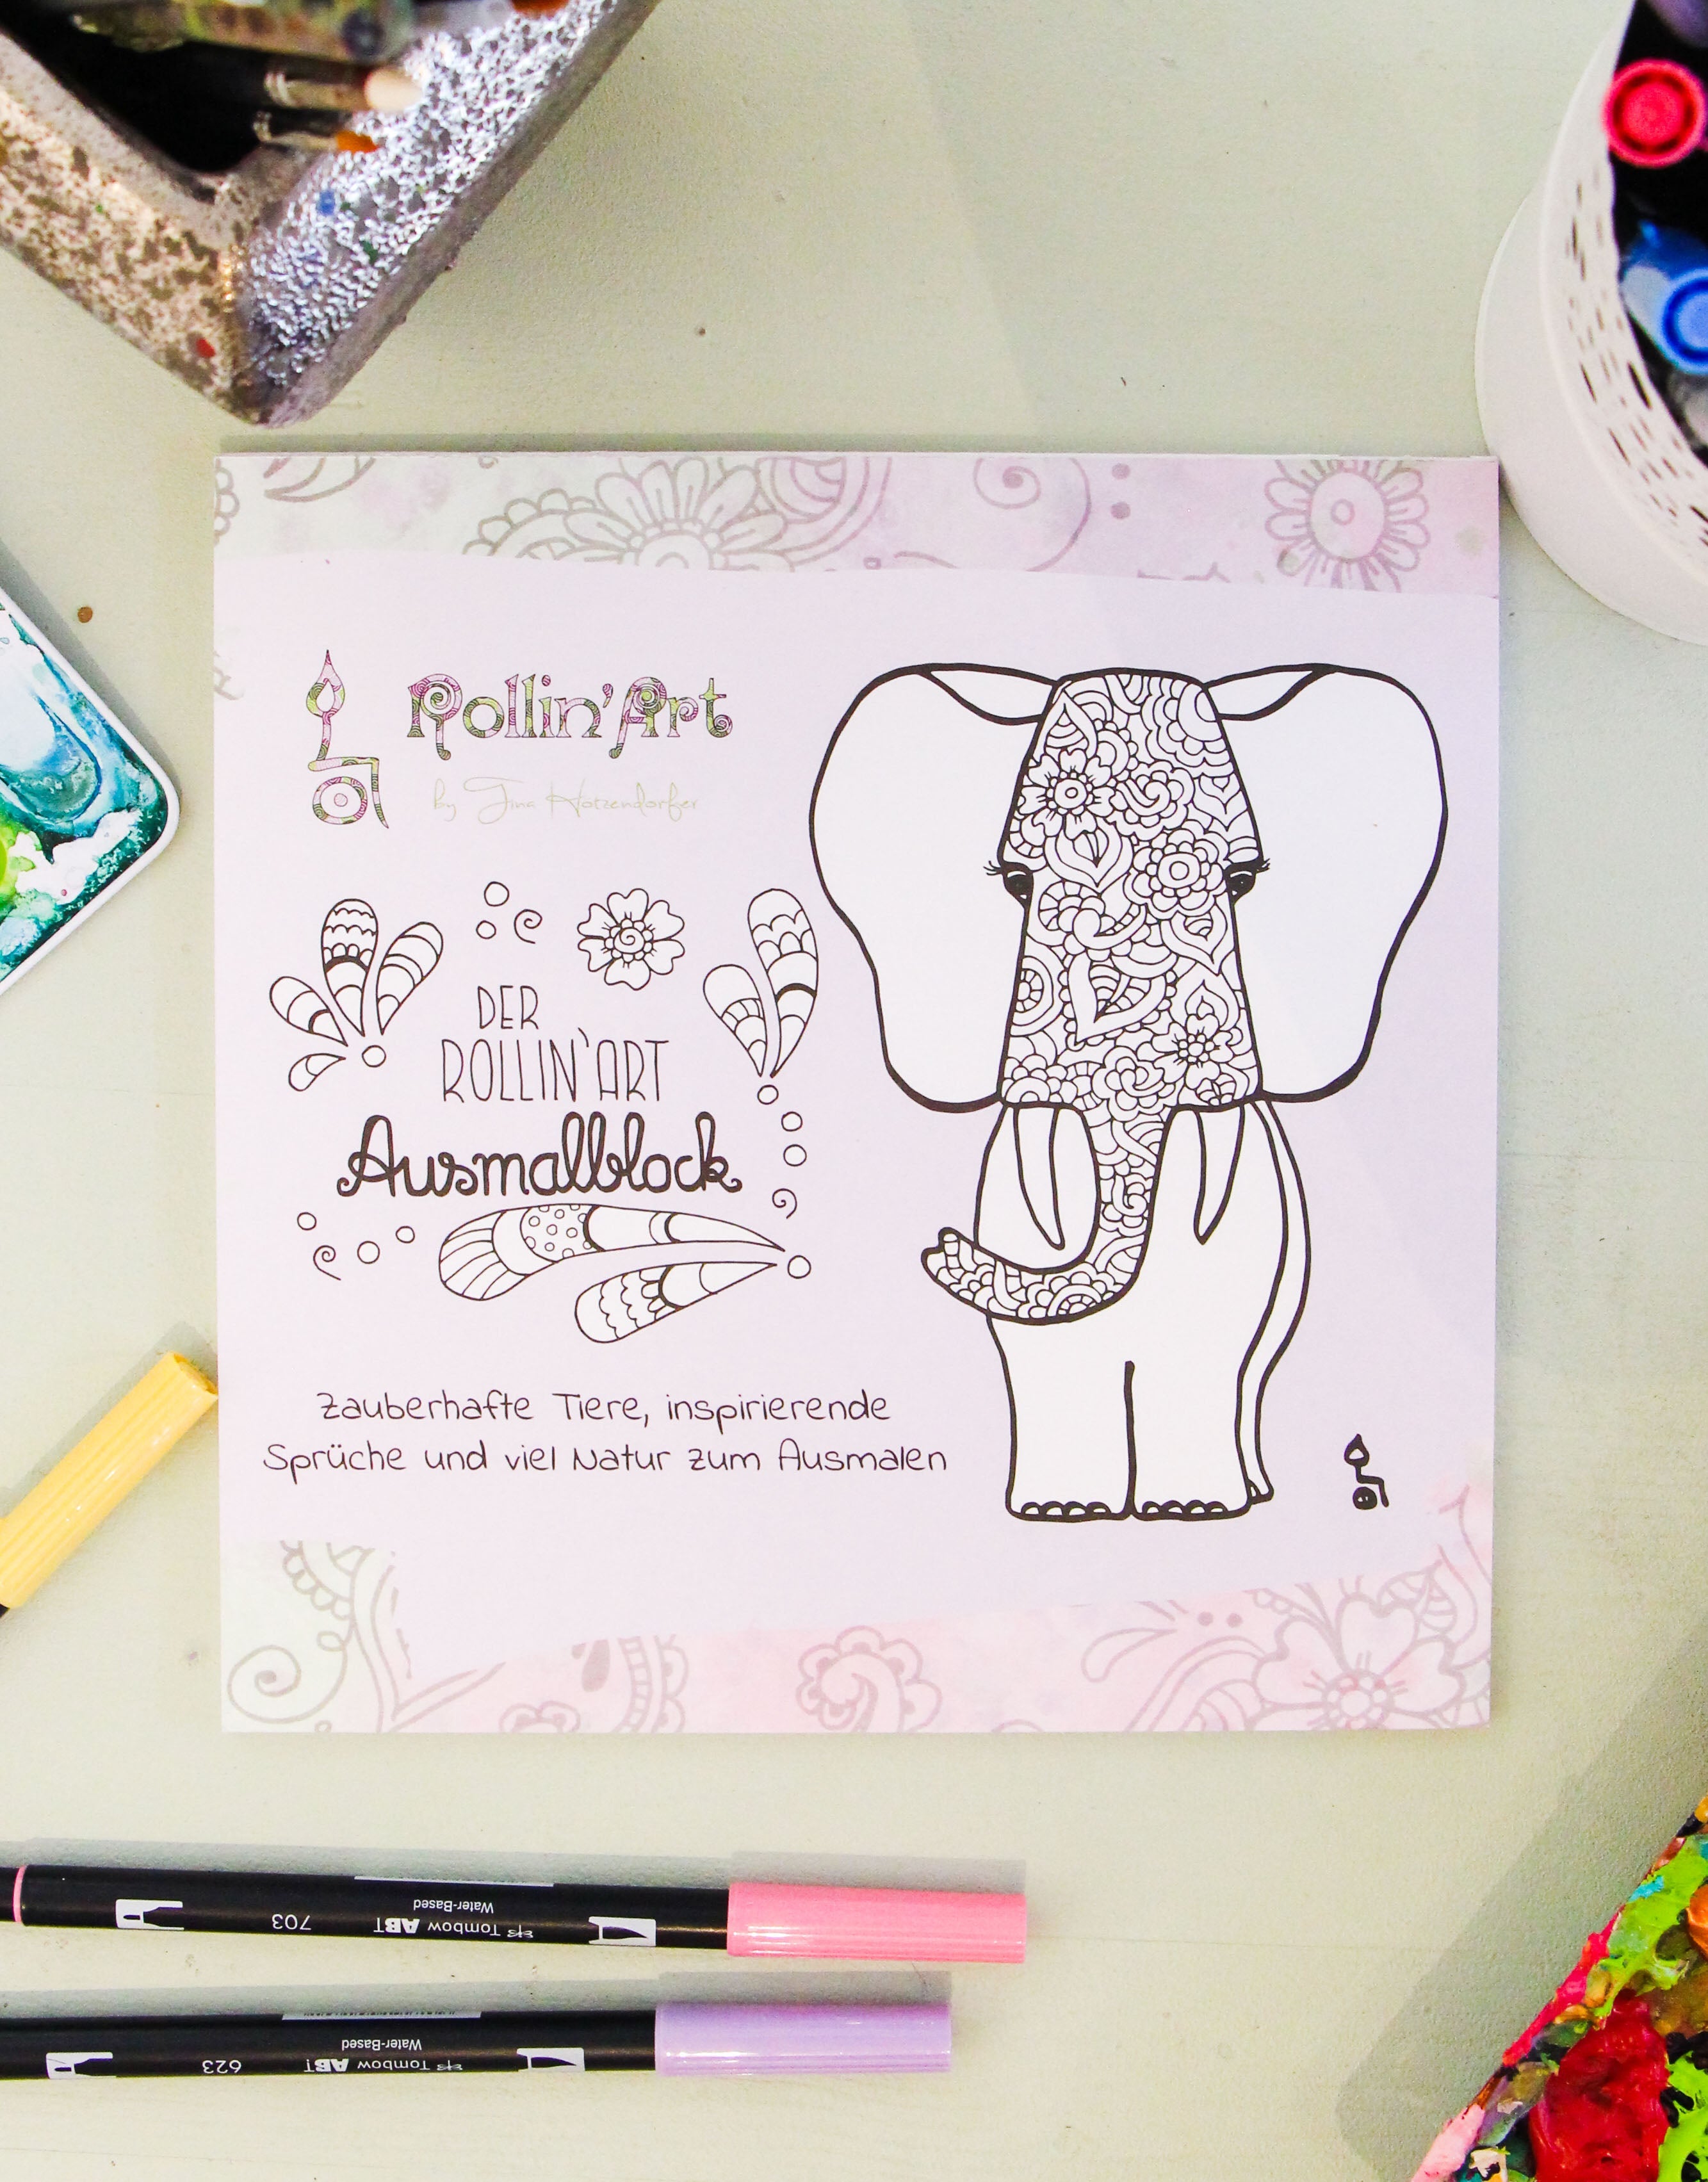 Rollin'Art
by Tina Hötzendorfer
DER
ROLLIN'ART
Ausmalblock
Zauberhafte Tiere, inspirierende
Sprüche und viel Natur zum Ausmalen
Tombow ABT 703
Water-Based
Tombow ABT 623
Water-Based